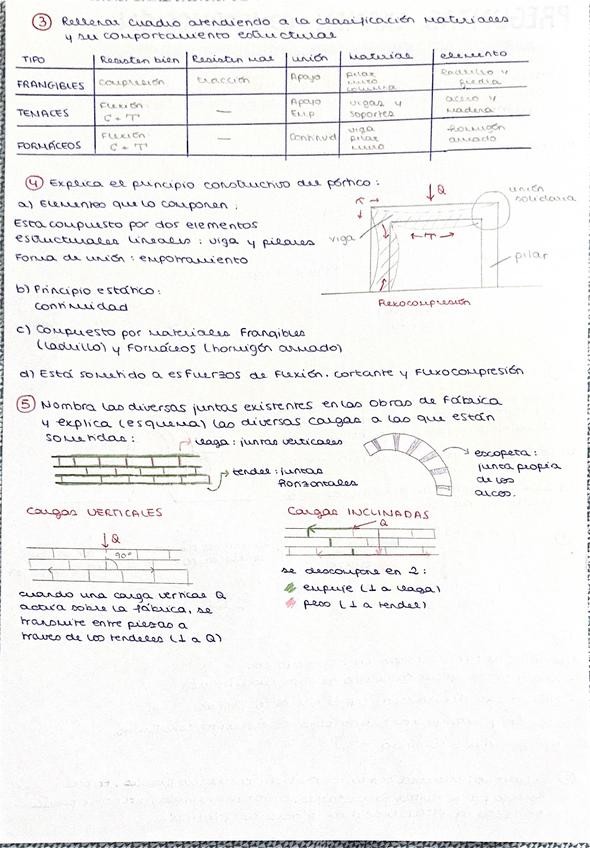 ③ Rellenar cuadro atendiendo a la clasificación materiales
y su comportamiento estructural
TIPO | Resisten bien | Resisten mal | unión | materias | elemento
FRANGIBLES | compresión | tracción | Apoyo | pilar muro columna | ladrillo y piedra
TENACES | Flexión C + T | — | Apoyo Emp | vigas y soportes | acero y madera
FORMÁCEOS | Flexión C + T | — | Continuid | viga pilar muro | hormigón armado
④ Explica el principio constructivo del pórtico:
a) Elementos que lo componen.
Esta compuesto por dos elementos
estructurales lineales: viga y pilares
Forma de unión: empotramiento
Q
unión
solidaria
viga
T
pilar
Flexocompresión
b) Principio estático:
continuidad
c) Compuesto por materiales Frangibles
(ladrillo) y Formáceos (hormigón armado)
d) Está sometido a esfuerzos de Flexión, cortante y Fluxocompresión
⑤ Nombra las diversas juntas existentes en las obras de Fábrica
y explica (esquema) las diversas cargas a las que están
sometidas:
llaga: juntas verticales
tendel: juntas
horizontales
escopeta:
junta propia
de los
arcos.
Cargas VERTICALES
Q
90º
cuando una carga vertical Q
actúa sobre la fábrica, se
transmite entre piezas a
través de los tendeles (⊥ a Q)
Cargas INCLINADAS
Q
se descompone en 2:
empuje (⊥ a llaga)
peso (⊥ a tendel)